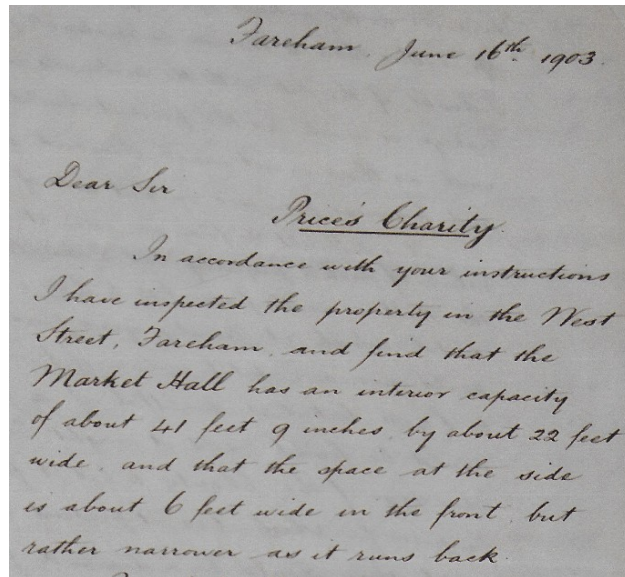 Fareham, June 16th. 1903.
Dear Sir
Price's Charity.
In accordance with your instructions
I have inspected the property in the West
Street, Fareham, and find that the
Market Hall has an interior capacity
of about 41 feet 9 inches by about 22 feet
wide, and that the space at the side
is about 6 feet wide in the front, but
rather narrower as it runs back.